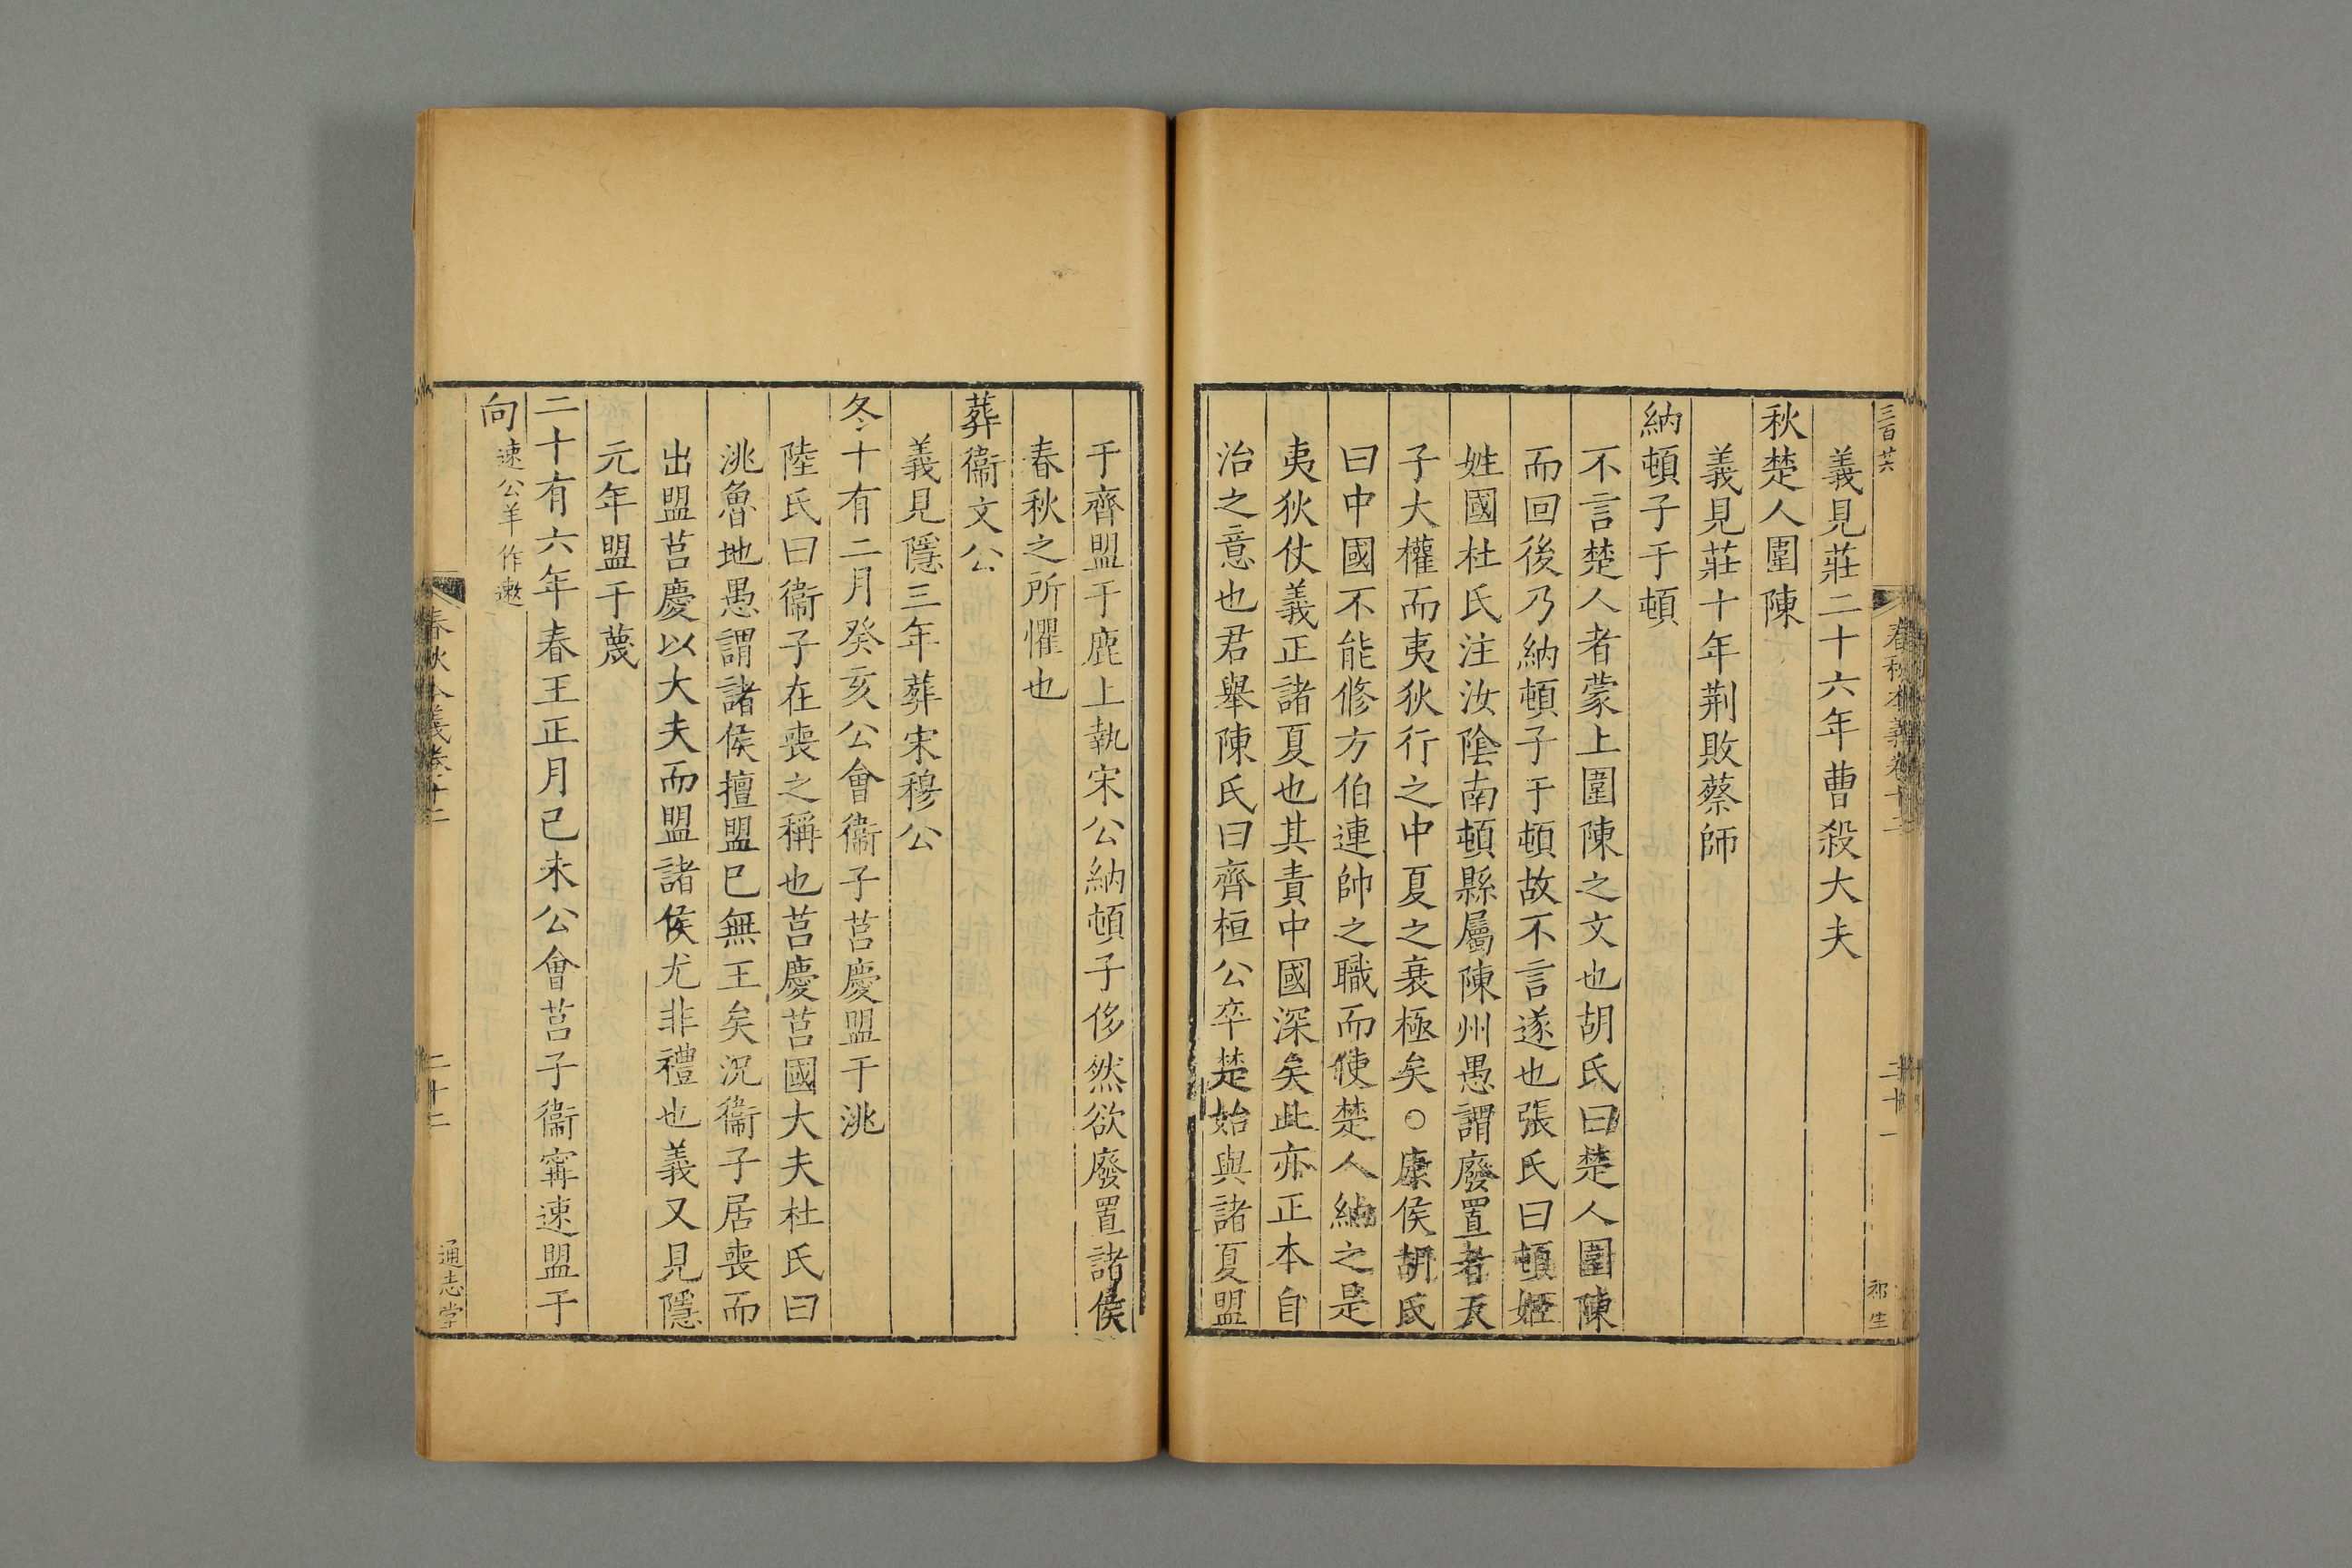 三百廿六
春秋本義卷十二
二十一
祁生
義見莊二十六年曹殺大夫
秋楚人圍陳
義見莊十年荆敗蔡師
納頓子于頓
不言楚人者蒙上圍陳之文也胡氏曰楚人圍陳
而回後乃納頓子于頓故不言遂也張氏曰頓姬
姓國杜氏注汝陰南頓縣屬陳州愚謂廢置者天
子大權而夷狄行之中夏之衰極矣○康侯胡氏
曰中國不能修方伯連帥之職而使楚人納之是
夷狄仗義正諸夏也其責中國深矣此亦正本自
治之意也君舉陳氏曰齊桓公卒楚始與諸夏盟
于齊盟于鹿上執宋公納頓子侈然欲廢置諸侯
春秋之所懼也
葬衞文公
義見隱三年葬宋穆公
冬十有二月癸亥公會衞子莒慶盟于洮
陸氏曰衞子在喪之稱也莒慶莒國大夫杜氏曰
洮魯地愚謂諸侯擅盟已無王矣況衞子居喪而
出盟莒慶以大夫而盟諸侯尤非禮也義又見隱
元年盟于蔑
二十有六年春王正月己未公會莒子衞甯速盟于
向速公羊作遬
春秋本義卷十二
二十二
通志堂